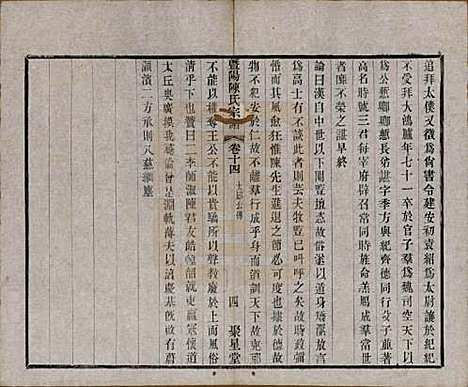 追拜太僕又徵爲尙書令建安初袁紹爲太尉讓於紀紀
不受拜大鴻臚年七十一卒於官子羣爲魏司空天下以
爲公慙卿卿慙長弟諶字季方與紀齊德同行父子並著
高名時號三君每宰府辟召常同時旌命羔鴈成羣當世
者靡不榮之諶早終
論曰漢自中世以下閹豎擅恣故俗遂以遁身矯絜放言
爲高士有不談此者則芸夫牧豎已叫呼之矣故時政彌
惛而其風愈往惟陳先生進退之節必可度也據於德故
物不犯安於仁故不離羣行成乎身而道訓天下故凶邪
不能以權奪王公不能以貴驕所以聲教廢於上而風俗
清乎下也贊曰二李師淑陳君道奧
太丘奧廣模我彝倫曾是淵軌薄夫以淳慶基既啟有蔚
潁濱二方承則八慈繼塵
暨陽陳氏宗譜
卷十四
太丘公傳
四
聚星堂